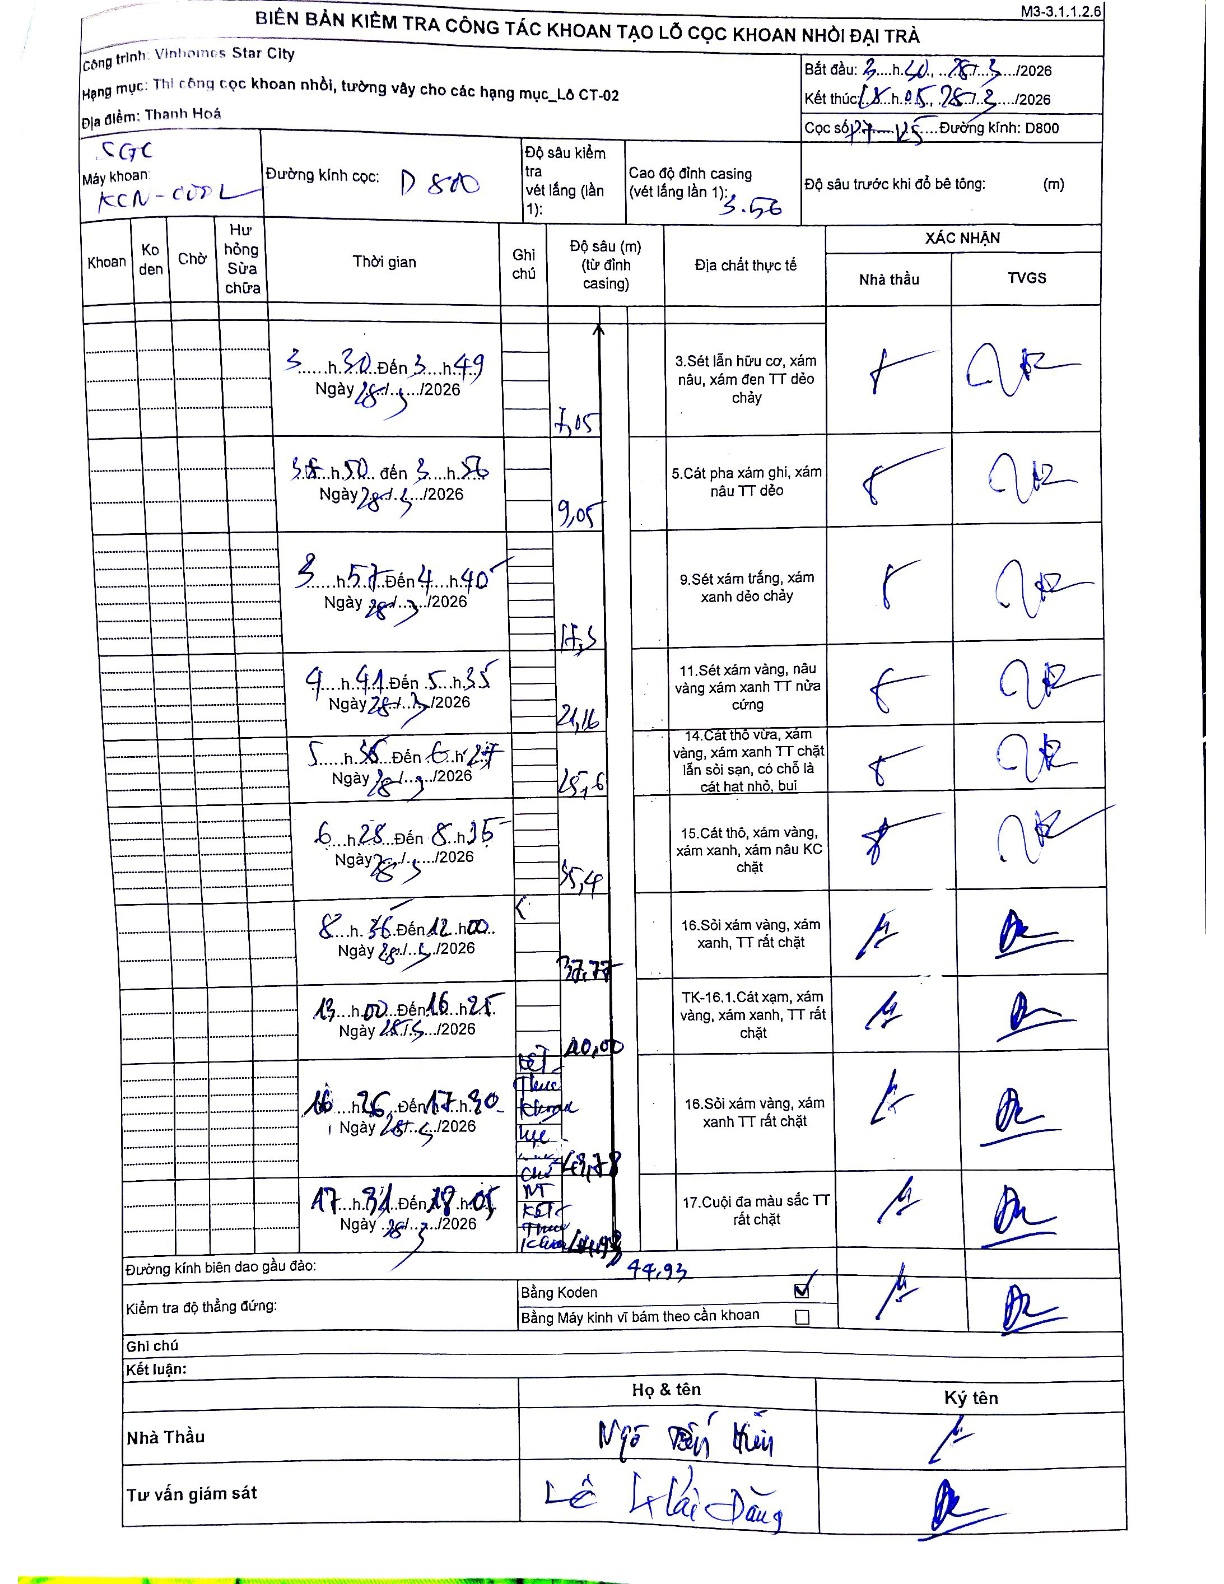 M3-3.1.1.2.6
BIÊN BẢN KIỂM TRA CÔNG TÁC KHOAN TẠO LỖ CỌC KHOAN NHỒI ĐẠI TRÀ
Công trình: Vinhomes Star City
Hạng mục: Thi công cọc khoan nhồi, tường vây cho các hạng mục_Lô CT-02
Địa điểm: Thanh Hoá
Bắt đầu: 3....h.30., ..28./.3.../2026
Kết thúc: 18.h.05., 28./.3..../2026
Cọc số P7-125....Đường kính: D800
SGC
Máy khoan:
Đường kính cọc: D 800
Độ sâu kiểm tra vét lắng (lần 1):
Cao độ đỉnh casing (vét lắng lần 1): 3.56
Độ sâu trước khi đổ bê tông: (m)
Khoan
Ko den
Chờ
Hư hỏng Sửa chữa
Thời gian
Ghi chú
Độ sâu (m) (từ đỉnh casing)
Địa chất thực tế
XÁC NHẬN
Nhà thầu
TVGS
3......h.30.Đến 3...h.49
Ngày 28./.3.../2026
7,05
3.Sét lẫn hữu cơ, xám nâu, xám đen TT dẻo chảy
3....h.50.. đến 3....h.56
Ngày 28./.3.../2026
9,05
5.Cát pha xám ghi, xám nâu TT dẻo
3....h57..Đến 4....h.40
Ngày 28./..3.../2026
17,3
9.Sét xám trắng, xám xanh dẻo chảy
4....h.41.Đến .5...h.35
Ngày 28./..3./2026
21,16
11.Sét xám vàng, nâu vàng xám xanh TT nửa cứng
5.....h.36..Đến 6..h 27
Ngày 28./..3./2026
25,6
14.Cát thô vừa, xám vàng, xám xanh TT chặt lẫn sỏi sạn, có chỗ là cát hạt nhỏ, bụi
6...h.28..Đến 8..h.35
Ngày 28./.3..../2026
35,4
15.Cát thô, xám vàng, xám xanh, xám nâu KC chặt
8...h. 36.Đến 12.h00..
Ngày 28./..3./2026
37,77
16.Sỏi xám vàng, xám xanh, TT rất chặt
13...h.00..Đến 16..h 25.
Ngày 28./.3.../2026
40,00
TK-16.1.Cát xạm, xám vàng, xám xanh, TT rất chặt
16...h 26..Đến 17.h.30
Ngày 28./..3./2026
Thúc
43,78
16.Sỏi xám vàng, xám xanh TT rất chặt
17...h.31..Đến 18.h.05
Ngày .28./..3./2026
Kết
Thúc
Khoan
44,93
17.Cuội đa màu sắc TT rất chặt
Đường kính biên dao gầu đào:
44,93
Kiểm tra độ thẳng đứng:
Bằng Koden
Bằng Máy kinh vĩ bám theo cần khoan
Ghi chú
Kết luận:
Họ & tên
Ký tên
Nhà Thầu
Ngô Tiến Hiển
Tư vấn giám sát
Lê Hải Đăng